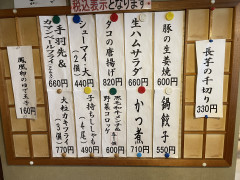 税込表示となります。
長芋の千切り
330円
豚の生姜焼
600円
鍋餃子
550円
生ハムサラダ
660円
かつ煮
710円
タコの唐揚げ
820円
野菜コロッケ
600円
シューマイ大
(2個)
440円
子持ちししゃも
(4尾)
490円
手羽先&
カマンベールフライ
660円
大粒カキフライ
(3個)
770円
160円